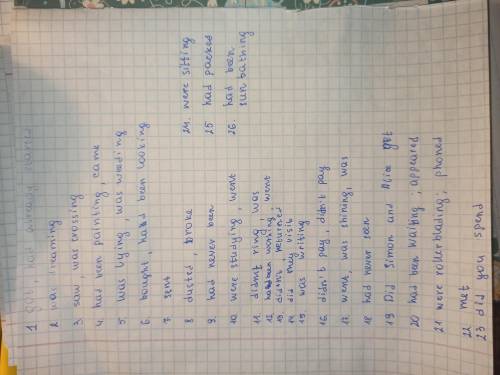 1
2 was dreaming
3 saw was crossing
4. had been painting, came
5. was lying, was reading
6. bought, had been looking
7. sent
8 dusted, broke
9. had never been
10 were studying, went
11. didn't ring, was
12. had been working, went
13. didn't returned
14 did they visit
15 was writing
16. didn't pay, didn't pay
17. went, was shining, was
18 had never seen
19 Did Simon and Alice get
20 had been waiting, appeared
21 were rollerblading; phoned
22 met
23 did you spend
24. were sitting
25 had packed
26. had been
sun bathing